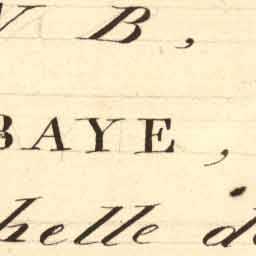 B,
BAYE,
helle d